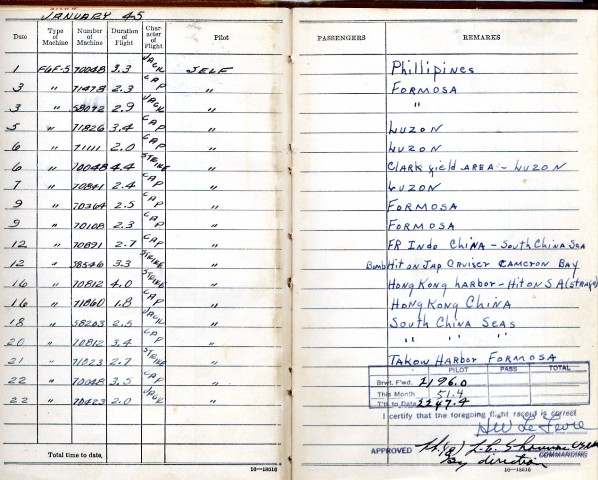 JANUARY 45
Date Type of Machine Number of Machine Duration of Flight Character of Flight Pilot PASSENGERS REMARKS
1 F6F-5 70048 3.3 JACK SELF Phillipines
3 " 71478 2.3 CAP " FORMOSA
3 " 58092 2.9 JACK " "
5 " 71826 3.4 CAP " LUZON
6 " 71111 2.0 CAP " LUZON
6 " 70048 4.4 STRIKE " CLARK field AREA - LUZON
7 " 70841 2.4 CAP " LUZON
9 " 70364 2.5 CAP " FORMOSA
9 " 70108 2.3 CAP " FORMOSA
12 " 70891 2.7 CAP " FR Indo China - South China Sea
12 " 58546 3.3 STRIKE " Bomb Hit on Jap Cruiser CAMERON BAY
16 " 70812 4.0 STRIKE " Hong Kong harbor - Hit on SA (strafe)
16 " 71860 1.8 CAP " HONG KONG CHINA
18 " 58203 2.5 JACK " South China SEAS
20 " 70812 3.4 CAP " " " "
21 " 71023 2.7 STRIKE " TAKOW HARBOR FORMOSA
22 " 70048 3.5 CAP "
22 " 70423 2.0 JACK "
PILOT PASS TOTAL
Brvt. F'wd. 2196.0
This Month 51.4
T't. to Date 2247.4
I certify that the foregoing flight record is correct
HW LeFevre
APPROVED
COMMANDING
By direction
Total time to date,
16—13016 16—13016